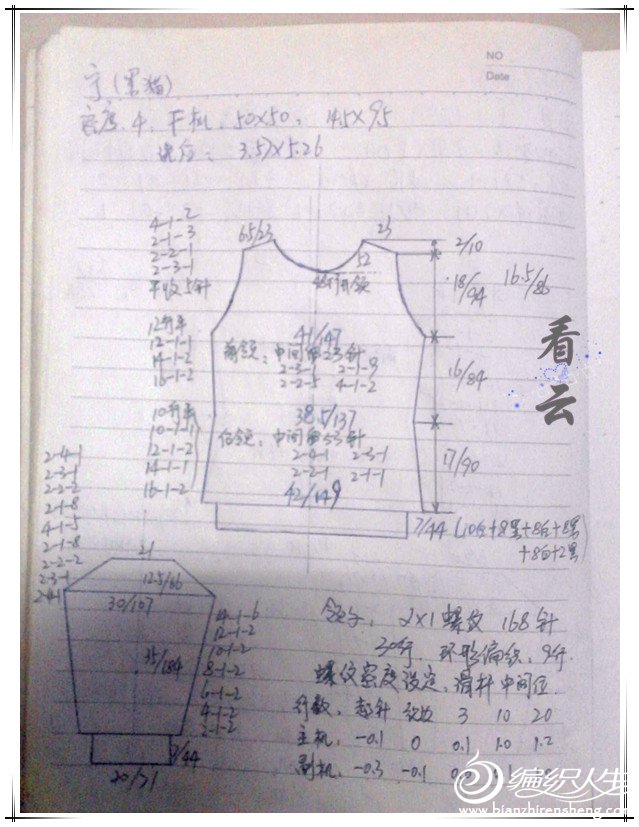 NO
Date
(黑猫)
密度.4. 平机. 50×50. 14.5×9.5
3.57×5.26
4-1-2
2-1-3
2-2-1
2-3-1
平收5针
65/23
23
52
2/10
18/94
16.5/86
12行平
12-1-1
14-1-2
16-1-2
41/147
前领: 中间留23针
2-3-1 2-1-9
2-2-5 4-1-2
16/84
看云
10行平
10-1-1
12-1-2
14-1-1
16-1-2
38.5/137
后领: 中间留53针
2-4-1 2-3-1
2-2-1 2-1-1
42/149
17/90
7/44 (10白+8黑+8白+8黑
+8白+2黑)
2-4-1
2-3-1
2-2-2
2-1-8
4-1-5
2-1-8
2-2-2
2-3-1
2-4-1
21
12.5/66
30/107
35/184
14-1-6
12-1-2
10-1-2
8-1-2
6-1-2
4-1-2
2-1-2
7/44
20/71
领子, 2×1螺纹 168针
30行, 环形编织, 9行.
螺纹密度设定, 滑杆中间位.
行数, 起针 3 10 20
主机, -0.1 0 0.1 1.0 1.2
副机, -0.3 -0.1
编织人生
www.bianzhirensheng.com